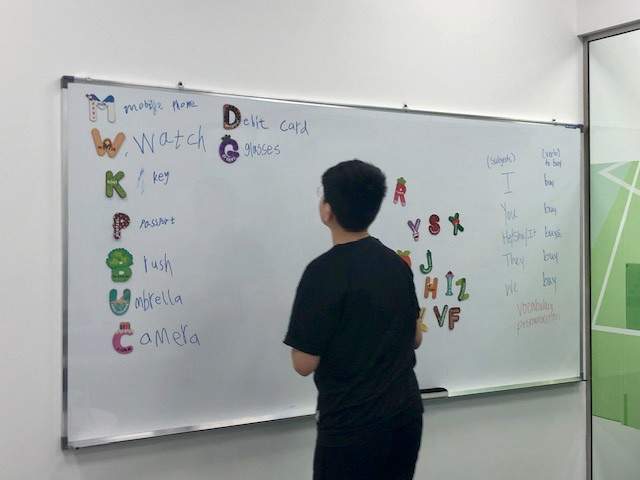 M mobile phone
W. Watch
K key
P passport
Brush
Umbrella
Camera
Debit card
G glasses
R
Y S X
J
H I Z
V F
(subjects) (verbs)
to buy
I buy
You buy
He/She/It buys
They buy
We buy
Vocabulary